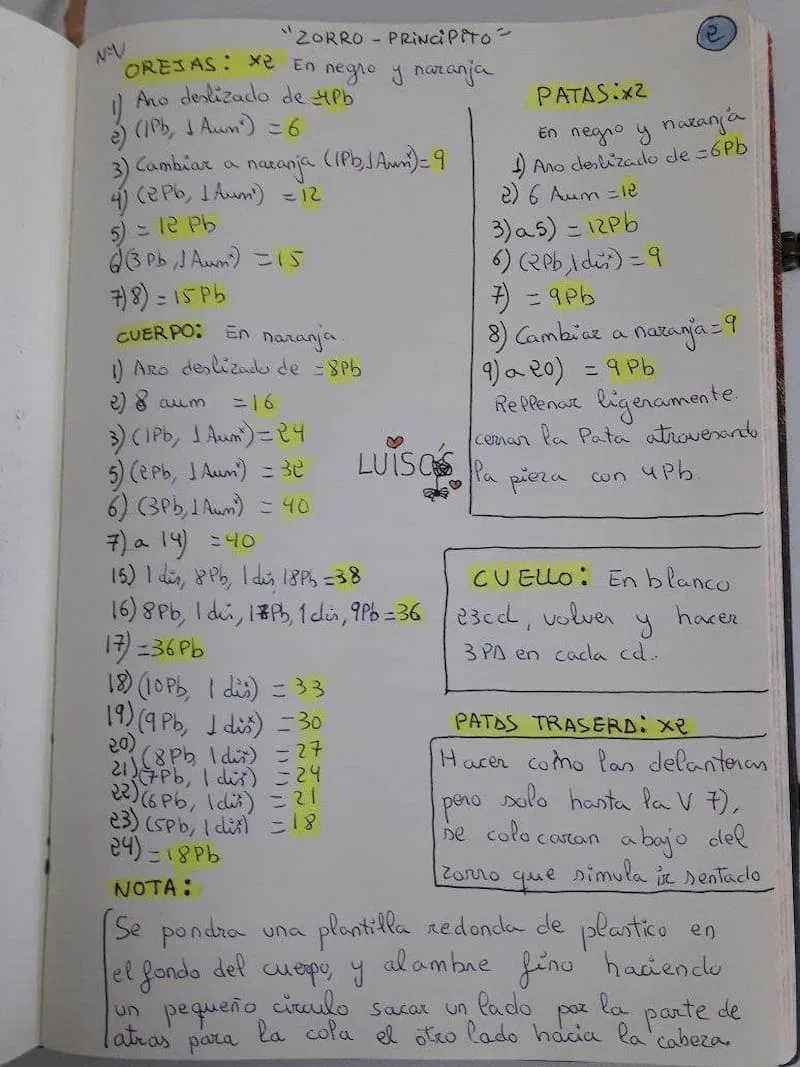 "ZORRO - PRINCIPITO"
2
N=V
OREJAS: x2 En negro y naranja
1) Aro deslizado de 4Pb
2) (1Pb, 1 Aum*) = 6
3) Cambiar a naranja (1Pb, 1 Aum*) = 9
4) (2Pb, 1 Aum*) = 12
5) = 12 Pb
6) (3 Pb, 1 Aum*) = 15
7) 8) = 15 Pb
CUERPO: En naranja
1) Aro deslizado de = 8Pb
2) 8 aum = 16
3) (1Pb, 1 Aum*) = 24
5) (2Pb, 1 Aum*) = 32
6) (3Pb, 1 Aum*) = 40
7) a 14) = 40
15) 1 dis, 8Pb, 1 dis, 18Pb = 38
16) 8Pb, 1 dis, 17Pb, 1 dis, 9Pb = 36
17) = 36Pb
18) (10Pb, 1 dis*) = 33
19) (9Pb, 1 dis*) = 30
20) (8Pb, 1 dis*) = 27
21) (7Pb, 1 dis*) = 24
22) (6Pb, 1 dis*) = 21
23) (5Pb, 1 dis*) = 18
24) = 18Pb
PATAS: x2
En negro y naranja
1) Aro deslizado de = 6Pb
2) 6 Aum = 12
3) a 5) = 12Pb
6) (2Pb, 1 dis*) = 9
7) = 9Pb
8) Cambiar a naranja = 9
9) a 20) = 9 Pb
Rellenar ligeramente.
cerrar la Pata atravesando
la pieza con 4Pb.
LUISOS
CUELLO: En blanco
23cd, volver y hacer
3 PA en cada cd.
PATAS TRASERA: x2
Hacer como las delanteras
pero solo hasta la V 7),
se colocaran abajo del
zorro que simula ir sentado
NOTA:
Se pondra una plantilla redonda de plastico en
el fondo del cuerpo, y alambre fino haciendo
un pequeño circulo sacar un lado por la parte de
atras para la cola el otro lado hacia la cabeza.